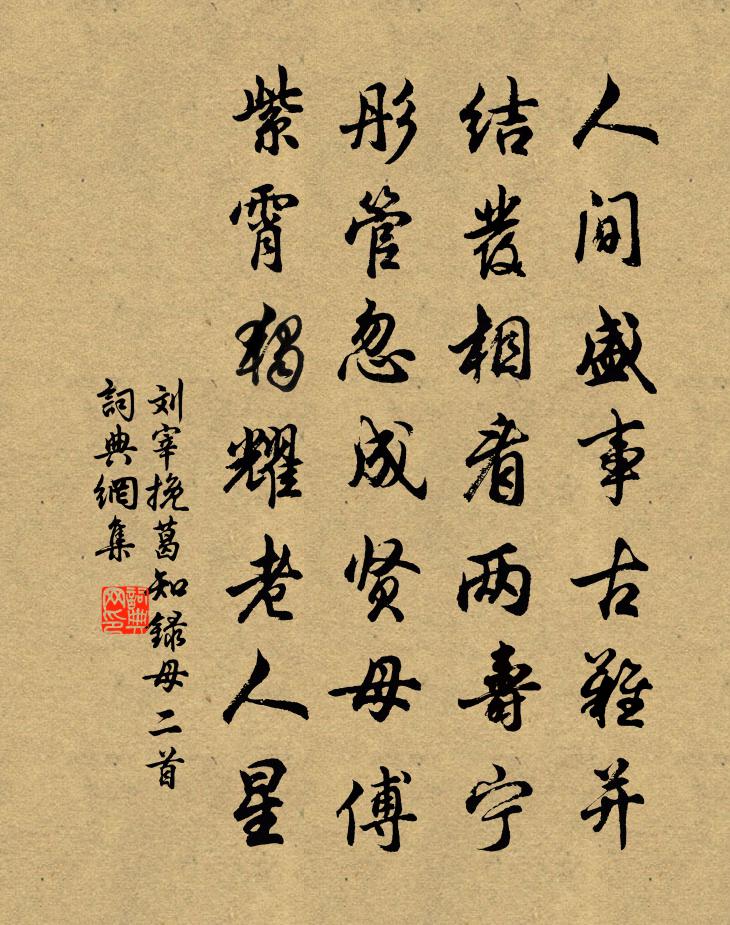 人间盛事古难并
结发相看两寿宁
彤管忽成贤母傅
紫霄独耀老人星
刘宰挽葛知録母二首
詞典網集
詞典网印